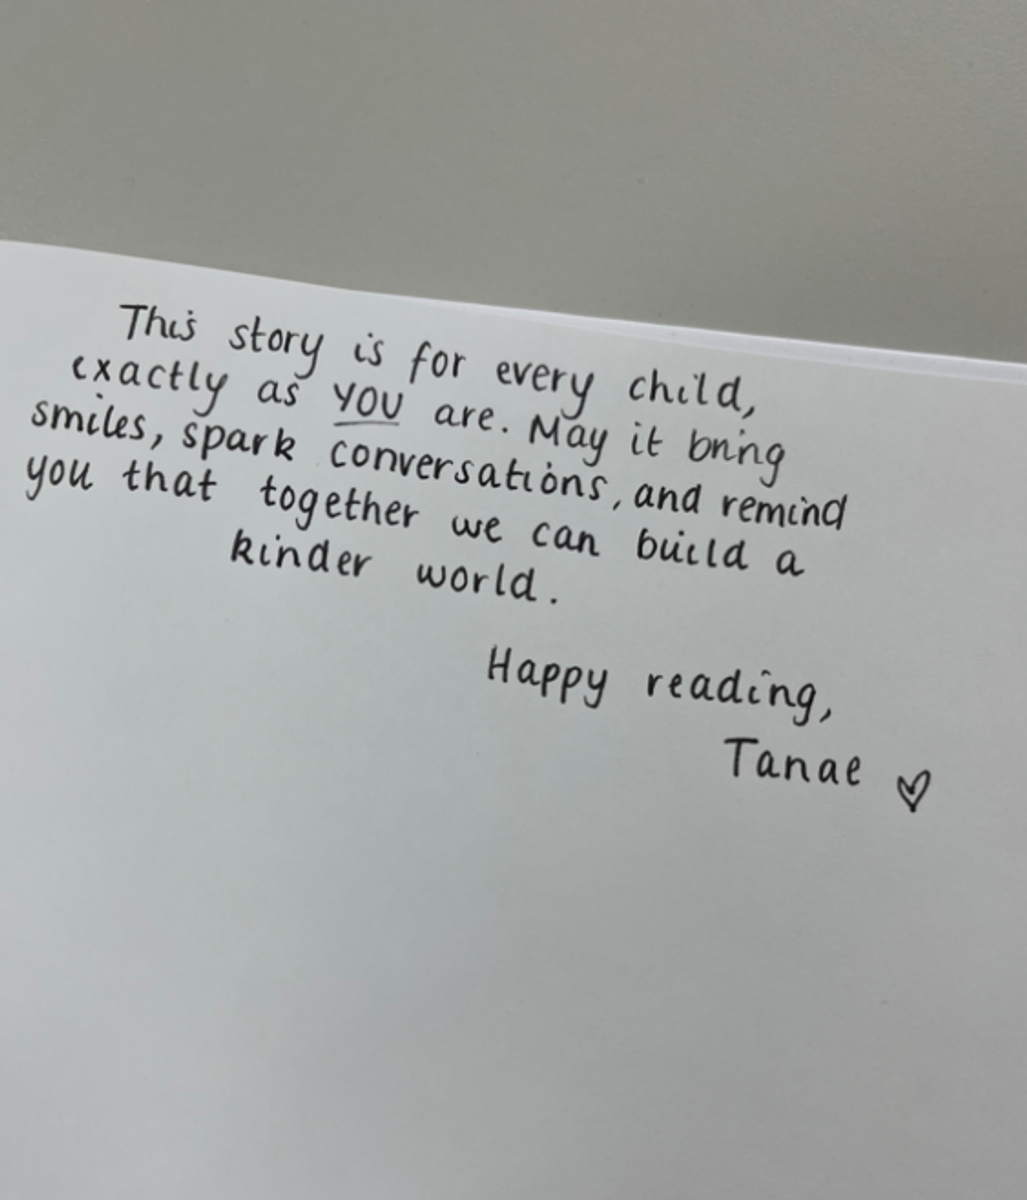 This story is for every child,
exactly as YOU are. May it bring
smiles, spark conversations, and remind
you that together we can build a
kinder world.
Happy reading,
Tanae ♡